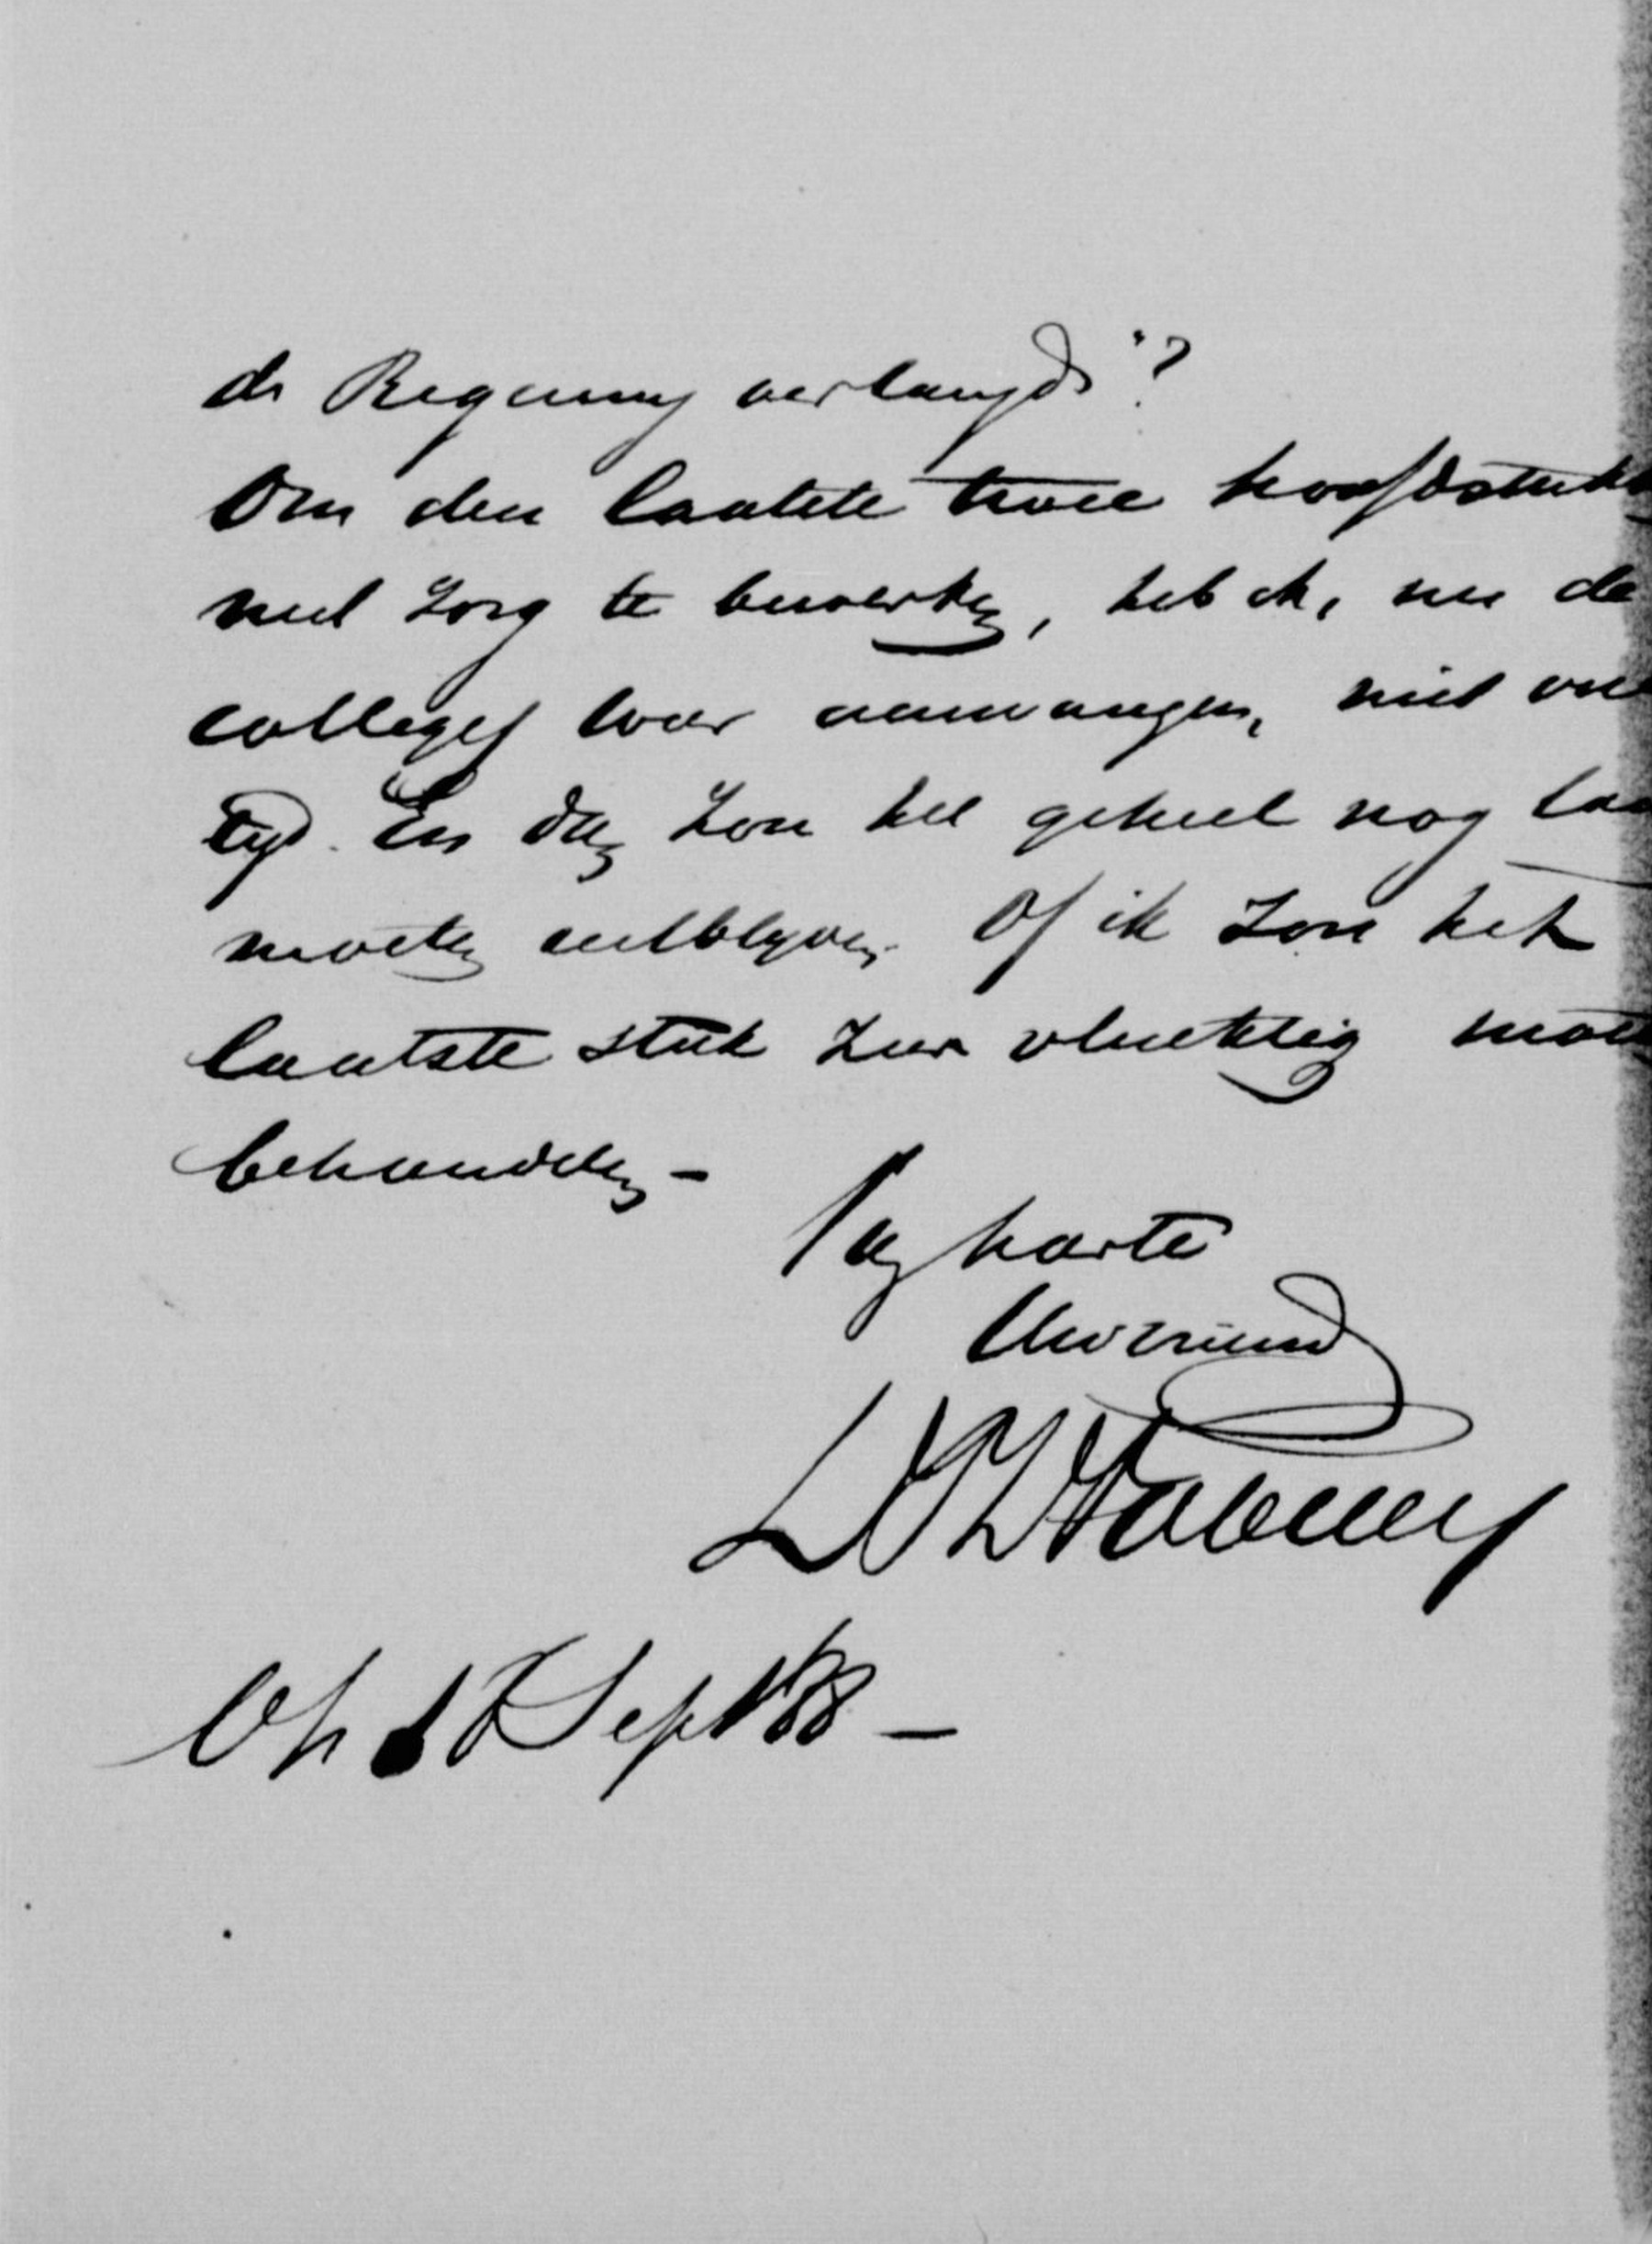 de Regeering verlangde"?
Om den laatste twee hoofdstukk
met zorg te bewerken, heb ik, nu de
colleges weer aanvangen, niet veel
tijd. En dan zou het geheel nog lan
moeten uitblijven. Of ik zou het
laatste stuk zeer vluchtig moet
behandelen -
Van harte
Uw vriend
Sept 88 -